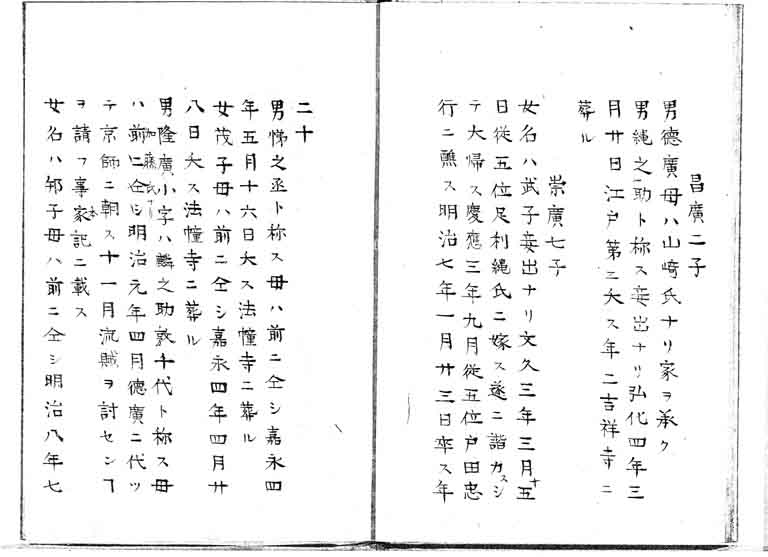 昌廣二子
男德廣母ハ山﨑氏ナリ家ヲ承ク
男縄之助ト称ス妾出ナリ弘化四年三
月廿日江戸第ニ夭ス年二吉祥寺ニ
葬ル
崇廣七子
女名ハ武子妾出ナリ文久三年三月十五
日從五位足利縄氏ニ嫁ス遂ニ諧カスシ
テ大帰ス慶應三年九月從五位戸田忠
行ニ醮ス明治七年一月廿三日卒ス年
二十
男悌之丞ト称ス母ハ前ニ仝シ嘉永四
年五月十六日夭ス法幢寺ニ葬ル
女茂子母ハ前ニ仝シ嘉永四年四月廿
八日夭ス法幢寺ニ葬ル
男隆廣小字ハ麟之助敦千代ト称ス母
ハ前ニ仝シ明治元年四月德廣ニ代ツ
加藤氏ナリ
テ京師ニ朝ス十一月流賊ヲ討センヿ
ヲ請フ事本家記ニ載ス
女名ハ邦子母ハ前ニ仝シ明治八年七